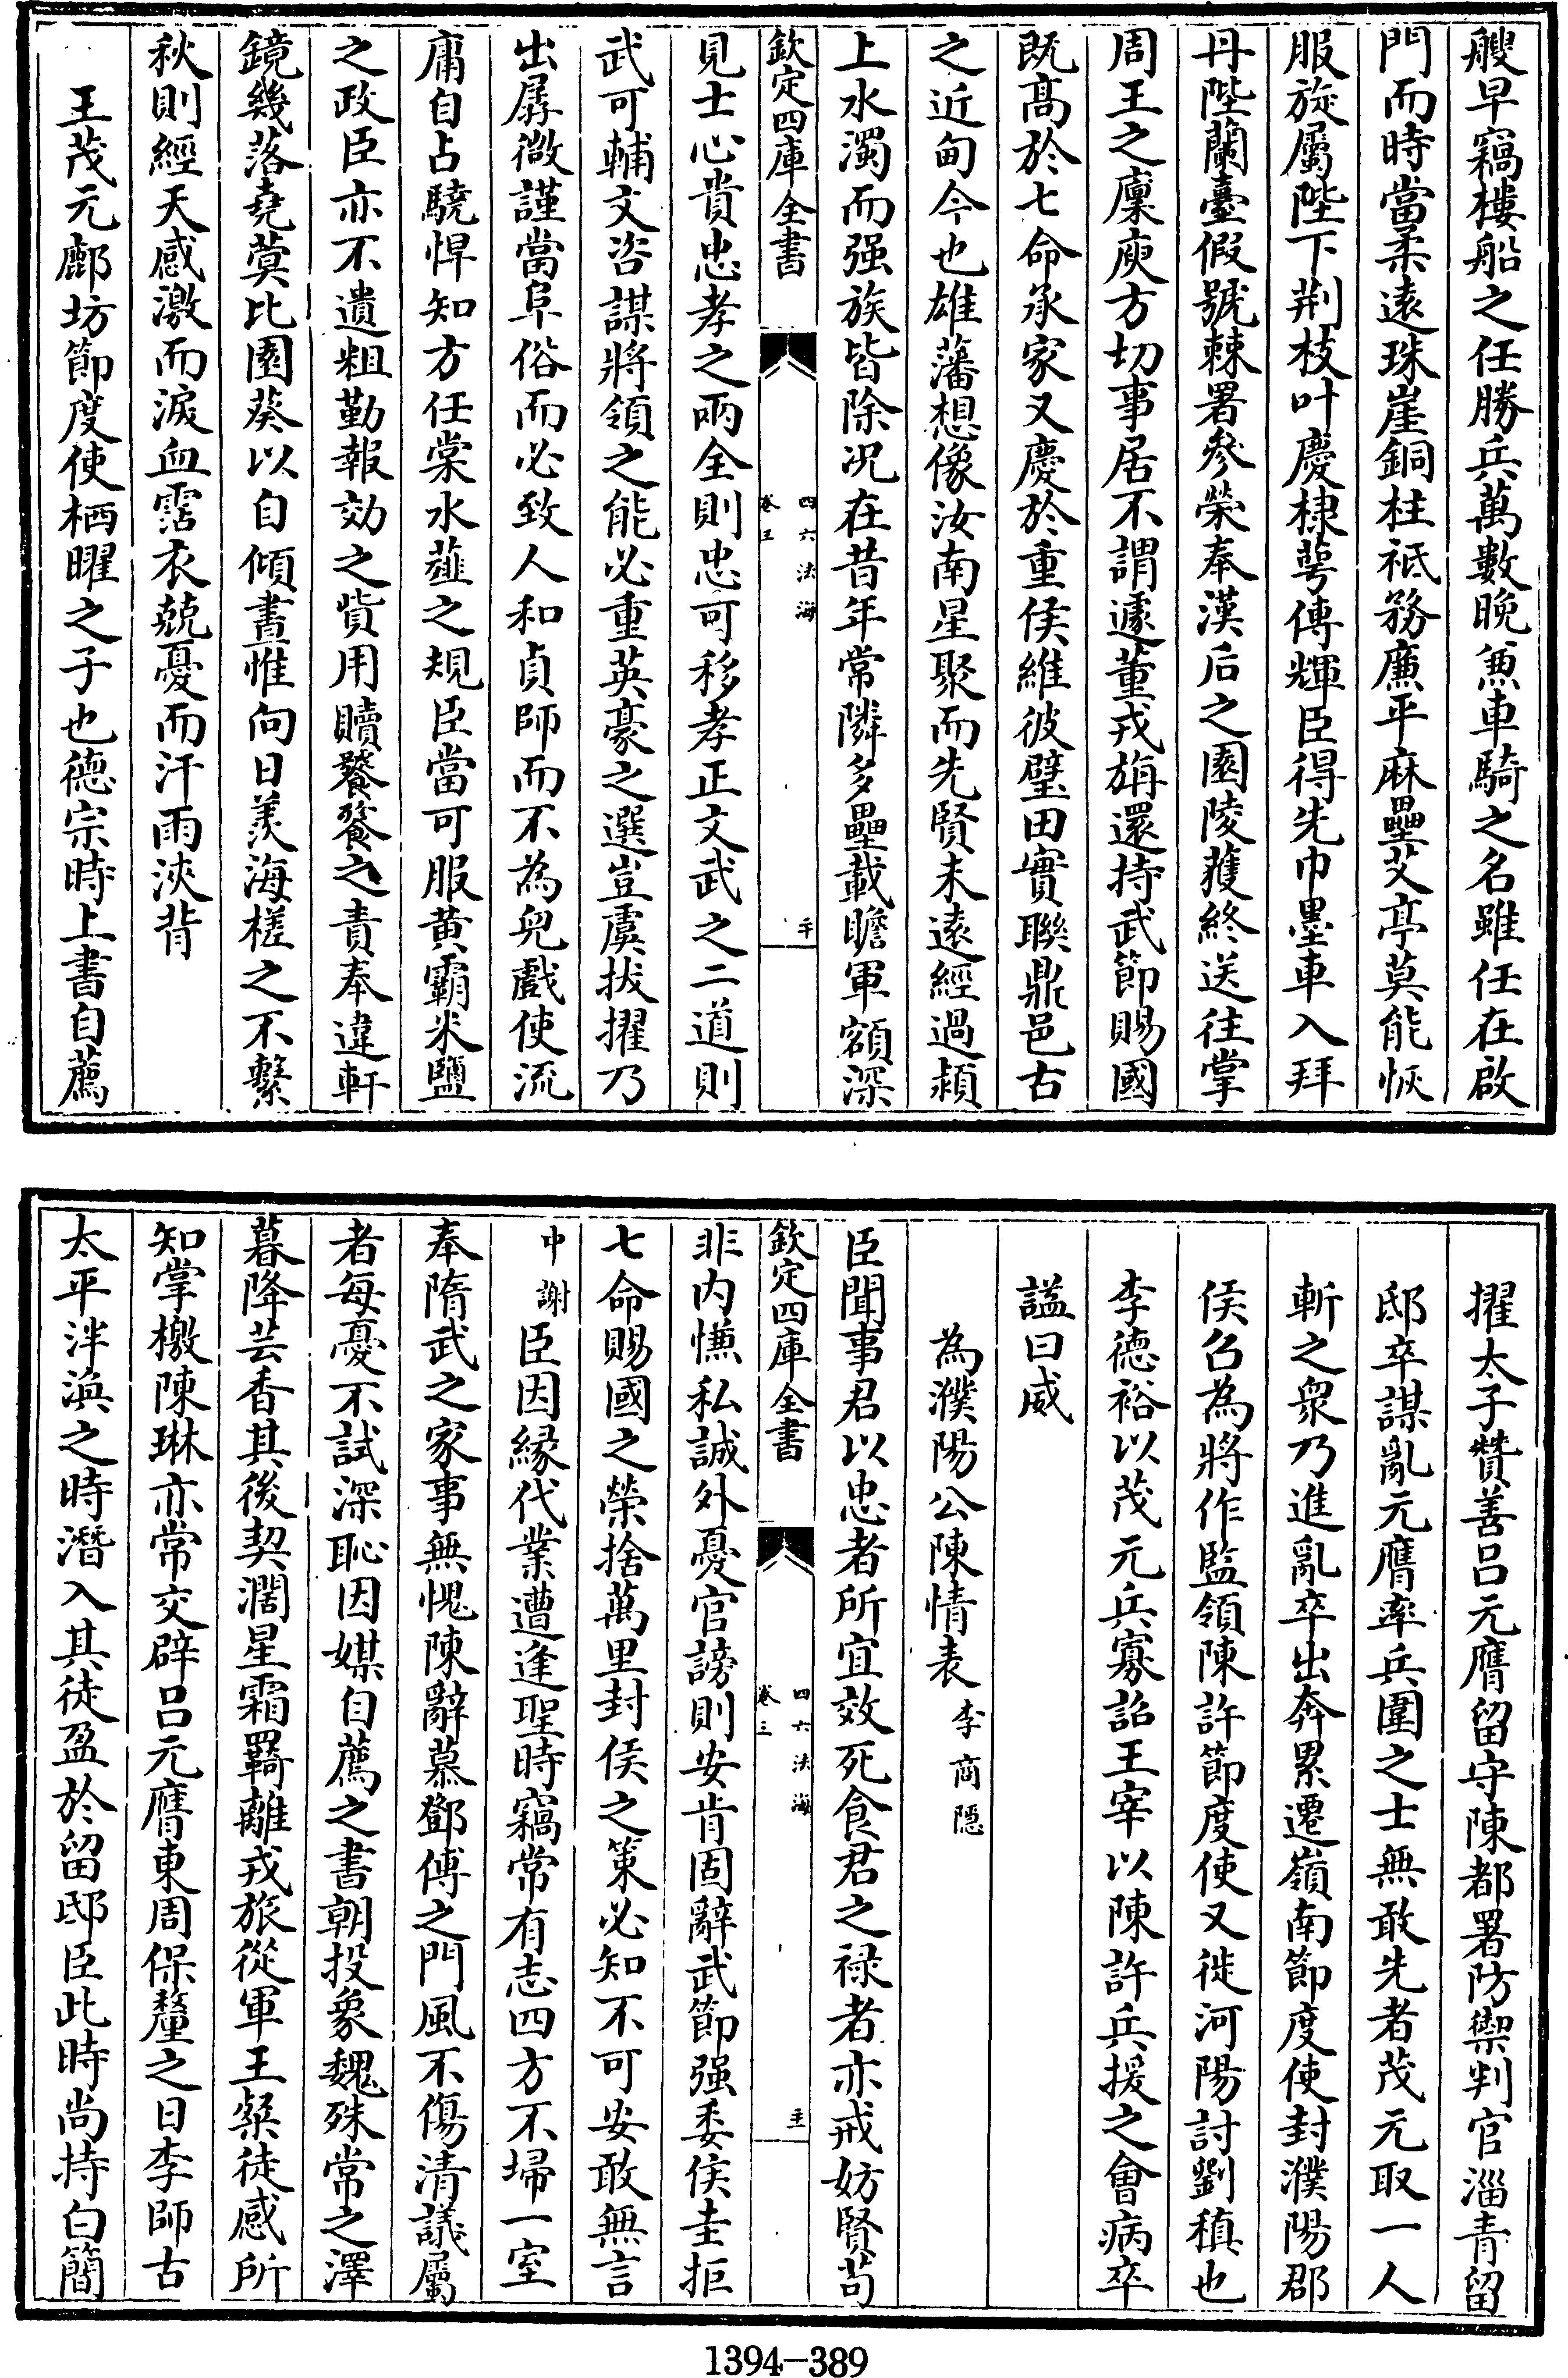 艘早竊樓船之任勝兵萬數晚兼車騎之名雖任在啟
門而時當柔遠珠崖銅柱祗務廉平麻壘艾亭莫能恢
服旋屬陛下荆枝叶慶棣萼傳輝臣得先巾墨車入拜
丹陛蘭臺假號棘署參榮奉漢后之園陵䕶終送往掌
周王之廩庾方切事居不謂遽董戎旃還持武節賜國
既髙於七命承家又慶於重侯維彼璧田實聯鼎邑古
之近甸今也雄藩想像汝南星聚而先賢未遠經過潁
上水濁而强族皆除况在昔年常隣多壘載瞻軍額深
欽定四庫全書
四六法海
卷三
見士心貴忠孝之兩全則忠可移孝正文武之二道則
武可輔文咨謀將領之能必重英豪之選豈虞拔擢乃
出孱微謹當阜俗而必致人和貞師而不為兒戲使流
庸自占驍悍知方任棠水薤之規臣當可服黄霸米鹽
之政臣亦不遺粗勤報効之貲用贖饕餮之責奉違軒
鏡幾落堯蓂比園葵以自傾晝惟向日羨海槎之不繫
秋則經天感激而淚血霑衣兢憂而汗雨浹背
王茂元鄜坊節度使栖曜之子也德宗時上書自薦
擢太子贊善呂元膺留守陳都署防禦判官淄青留
邸卒謀亂元膺率兵圍之士無敢先者茂元取一人
斬之衆乃進亂卒出奔累遷嶺南節度使封濮陽郡
侯召為將作監領陳許節度使又徙河陽討劉稹也
李德裕以茂元兵寡詔王宰以陳許兵援之會病卒
謚曰威
為濮陽公陳情表 李商隱
臣聞事君以忠者所宜效死食君之禄者亦戒妨賢茍
欽定四庫全書
四六法海
卷三
非内慊私誠外憂官謗則安肯固辭武節强委侯圭拒
七命賜國之榮捨萬里封侯之策必知不可安敢無言
中謝臣因縁代業遭逢聖時竊常有志四方不埽一室
奉隋武之家事無愧陳辭慕鄧傅之門風不傷清議屬
者每憂不試深恥因媒自薦之書朝投象魏殊常之澤
暮降芸香其後契濶星霜羇離戎旅從軍王粲徒感所
知掌檄陳琳亦常交辟呂元膺東周保釐之日李師古
太平泮渙之時潛入其徒盈於留邸臣此時尚持白簡
1394-389